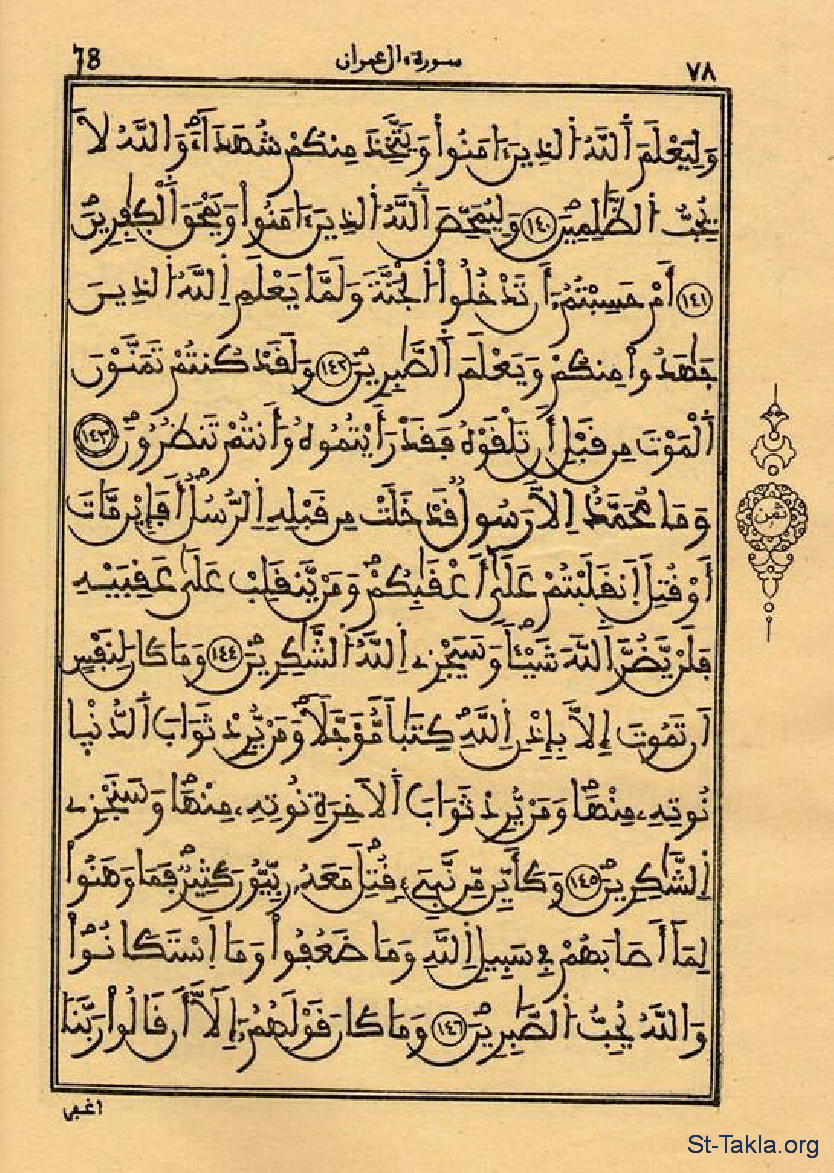 78 سورة ءال عمران ٧٨
وَلِيَعْلَمَ اَللَّهُ الذِينَ ءَامَنُواْ وَيَتَّخِذَ مِنكُمْ شُهَدَآءَ وَاللَّهُ لَا
يُحِبُّ الظَّٰلِمِينَ ١٤٠ وَلِيُمَحِّصَ اَللَّهُ الذِينَ ءَامَنُواْ وَيَمْحَقَ اَلْكَٰفِرِينَ
١٤١ أَمْ حَسِبْتُمُۥ أَن تَدْخُلُواْ الْجَنَّةَ وَلَمَّا يَعْلَمِ اِللَّهُ الذِينَ
جَٰهَدُواْ مِنكُمْ وَيَعْلَمَ اَلصَّٰبِرِينَ ١٤٢ وَلَقَدْ كُنتُمْ تَمَنَّوْنَ
اَلْمَوْتَ مِن قَبْلِ أَن تَلْقَوْهُ فَقَدْ رَأَيْتُمُوهُ وَأَنتُمْ تَنظُرُونَ ١٤٣
وَمَا مُحَمَّدٌ اِلَّا رَسُولٌ قَدْ خَلَتْ مِن قَبْلِهِ اِلرُّسُلُ أَفَإِيْن مَّاتَ
أَوْ قُتِلَ اَنقَلَبْتُمْ عَلَىٰ أَعْقَٰبِكُمْ وَمَنْ يَّنقَلِبْ عَلَىٰ عَقِبَيْهِ
فَلَنْ يَّضُرَّ اَللَّهَ شَيْـٔاً وَسَيَجْزِے اِللَّهُ الشَّٰكِرِينَ ١٤٤ وَمَا كَانَ لِنَفْسٍ
اَن تَمُوتَ إِلَّا بِإِذْنِ اِللَّهِ كِتَٰباً مُّؤَجَّلاً وَمَنْ يُّرِدْ ثَوَابَ اَلدُّنْيا
نُوتِهِۦ مِنْهَا وَمَنْ يُّرِدْ ثَوَابَ اَلَاخِرَةِ نُوتِهِۦ مِنْهَا وَسَنَجْزِے
اِلشَّٰكِرِينَ ١٤٥ وَكَأَيِّن مِّن نَّبِےٓءٍ قُتِلَ مَعَهُۥ رِبِّيُّونَ كَثِيرٌ فَمَا وَهَنُواْ
لِمَا أَصَابَهُمْ فِے سَبِيلِ اِللَّهِ وَمَا ضَعُفُواْ وَمَا اَسْتَكَانُواْ
وَاللَّهُ يُحِبُّ الصَّٰبِرِينَ ١٤٦ وَمَا كَانَ قَوْلَهُمُۥ إِلَّا أَن قَالُواْ رَبَّنَا
اغفر
ثمن
St-Takla.org